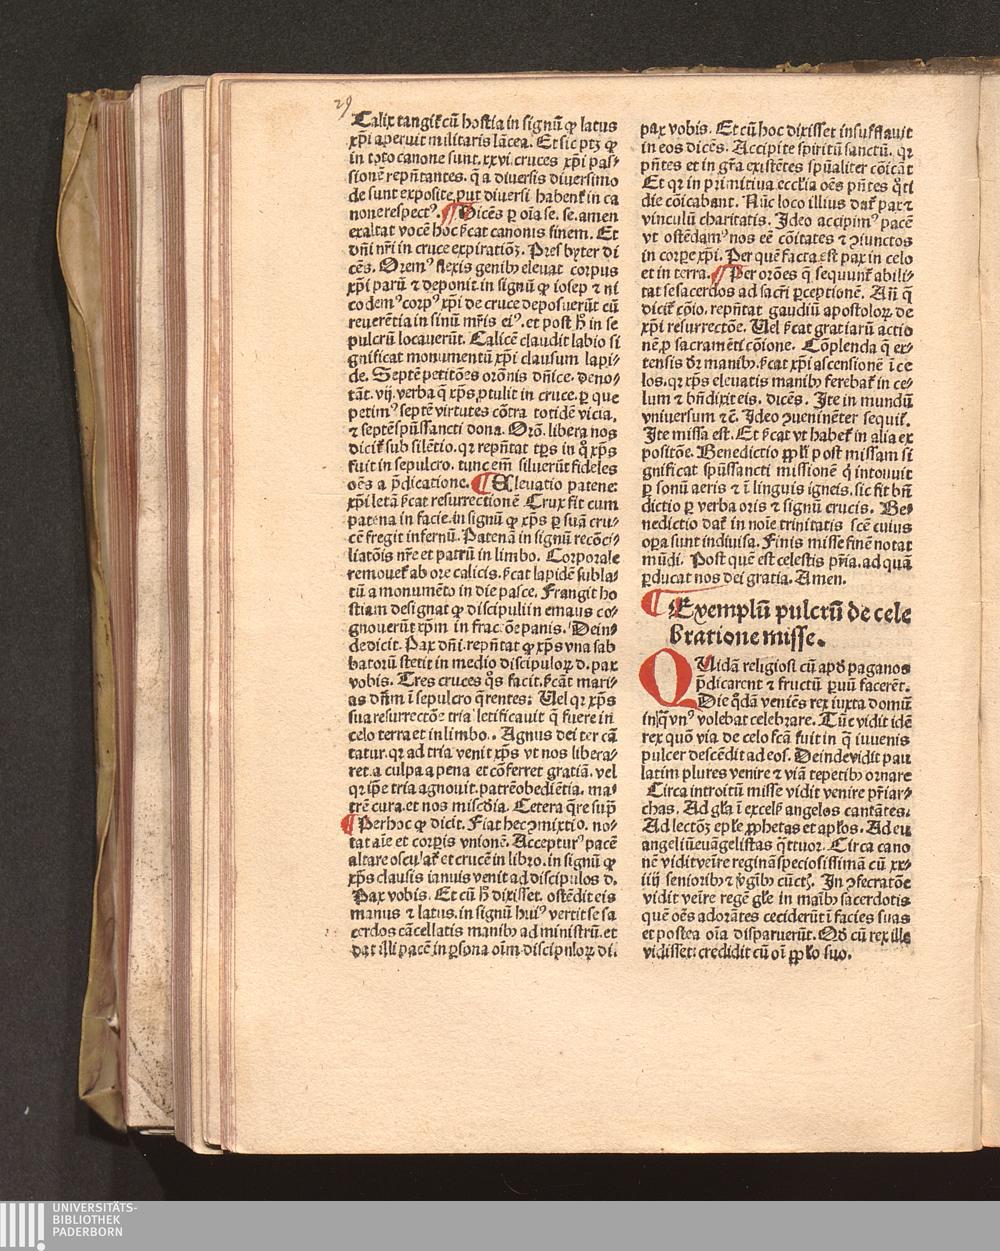 29
Calix tangit̃ cū hostia in signū ꝙ latus
xp̄i aperuit militaris lācea. Et sic ptꝫ ꝙ
in toto canone sunt. xxvi. cruces xp̄i pas⸗
sionē repn̄tantes. q̄ a diuersis diuersimo
de sunt exposite. put diuersi habent̃ in ca
none respectꝰ. ¶ Dicēs ꝑ oīa se. se. amen
exaltat vocē hoc ẜcat canonis finem. Et
dn̄i nr̄i in cruce expiratiōꝫ. Presbyter di
cēs. Oremꝰ flexis genibꝫ eleuat corpus
xp̄i parū ⁊ deponit. in signū ꝙ iosep ⁊ ni
codemꝰ corpꝰ xp̄i de cruce deposuerūt cū
reuerētia in sinū mr̄is eiꝰ. et post h̄ in se
pulcrū locauerūt. Calicē claudit labio si
gnificat monumentū xp̄i clausum lapi⸗
de. Septē petitōes orōnis dn̄ice. deno⸗
tāt. vij. verba q̄ xp̄s ꝓtulit in cruce. ꝑ que
petimꝰ septē virtutes cōtra totidē vicia.
⁊ septē spūssancti dona. Orō. libera nos
dicit̃ sub silētio. qꝛ repn̄tat tp̄s in q̊ xp̄s
fuit in sepulcro. tunc em̄ siluerūt fideles
oēs a p̄dicatione. ¶ Eleuatio patene
xp̄i leta ẜcat resurrectionē Crux fit cum
patena in facie. in signū ꝙ xp̄s ꝑ suā cru⸗
cē fregit infernū. Patenā in signū recōci⸗
liatōis nr̄e et patrū in limbo. Corporale
remouet̃ ab ore calicis. ẜcat lapidē subla⸗
tū a monumēto in die pasce. Frangit ho
stiam designat ꝙ discipuli in emaus co⸗
gnouerūt xp̄m in fractōe panis. Dein⸗
de dicit. Pax dn̄i. repn̄tat ꝙ xp̄s vna sab
batorū stetit in medio discipuloꝝ d. pax
vobis. Tres cruces q̄s facit. ẜcāt mari⸗
as dn̄m ī sepulcro q̄rentes: Uel qꝛ xp̄s
sua resurrectōe tria letificauit q̄ fuere in
celo terra et in limbo. Agnus dei ter cā
tatur. qꝛ ad tria venit xp̄s vt nos libera⸗
ret. a culpa a pena et cōferret gratiā. vel
qꝛ ip̄e tria agnouit. patrē obediētia. ma⸗
trē cura. et nos mis̄cdia. Cetera q̄re sup̄
¶ Per hoc ꝙ dicit. Fiat hec ꝯmixtio. no⸗
tat aīe et corꝑis vnionē. Accepturꝰ pacē
altare osculat̃ et crucē in libro. in signū ꝙ
xp̄s clausis ianuis venit ad discipulos d.
Pax vobis. Et cū h̄ dixisset. ostēdit eis
manus ⁊ latus. in signū huiꝰ vertit se sa
cerdos cācellatis manibꝫ ad ministrū. et
dat illi pacē in ꝑsona oīm discipuloꝝ di.
pax vobis. Et cū hoc dixisset insufflauit
in eos dicēs. Accipite spiritū sanctū. qꝛ
pn̄tes et in gr̄a existētes spūaliter cōicāt
Et qꝛ in primitiua eccl̄ia oēs pn̄tes q̊ti
die cōicabant. Nūc loco illius dat̃ pax ⁊
vinculū charitatis. Ideo accipimꝰ pacē
vt ostēdamꝰ nos eē cōitates ⁊ ꝯiunctos
in corꝑe xp̄i. Per quē facta est pax in celo
et in terra. ¶ Per orōes q̄ sequunt̃ abili⸗
tat se sacerdos ad sacr̄i ꝑceptionē. Añ q̄
dicit̃ cōio. repn̄tat gaudiū apostoloꝝ de
xp̄i resurrectōe. Uel ẜcat gratiarū actio
nē ꝓ sacramēti cōione. Cōplenda q̄ ex⸗
tensis dr̄ manibꝫ. ẜcat xp̄i ascensionē ī ce
los. qꝛ xp̄s eleuatis manibꝫ ferebat̃ in ce⸗
lum ⁊ bn̄dixit eis. dicēs. Ite in mundū
vniuersum ⁊ c̄. Ideo ꝯueniēter sequit̃.
Ite missa est. Et ẜcat vt habet̃ in alia ex
positōe. Benedictio pp̄l̄i post missam si
gnificat spūssancti missionē q̊ intonuit
ꝑ sonū aeris ⁊ ī linguis igneis. sic fit bn̄
dictio ꝑ verba oris ⁊ signū crucis. Be⸗
nedictio dat̃ in noīe trinitatis scē cuius
oꝑa sunt indiuisa. Finis misse finē notat
mūdi. Post quē est celestis pr̄ia. ad quā
ꝑducat nos dei gratia. Amen.
¶ Exemplū pulcrū de cele
bratione misse.
QUidā religiosi cū apd̄ paganos
p̄dicarent ⁊ fructū ꝑuū facerēt.
Die q̄dā veniēs rex iuxta domū
in q̄ vnꝰ volebat celebrare. Tūc vidit idē
rex quō via de celo fc̄a fuit in q̄ iuuenis
pulcer descēdit ad eos. Deinde vidit pau
latim plures venire ⁊ viā tepetibꝫ ornare
Circa introitū misse vidit venire pr̄iar⸗
chas. Ad gl̄a ī excels̄ angelos cantātes.
Ad lectōꝫ epl̄e ꝓphetas et apl̄os. Ad eu
angeliū euāgelistas q̄ttuor. Circa cano
nē vidit venīre reginā speciosissimā cū xx⸗
iiij senioribꝫ ⁊ v̄gībꝫ cūctꝭ. In ꝯsecratōe
vidit venīre regē gl̄e in maībꝫ sacerdotis
quē oēs adorātes ceciderūt ī facies suas
et postea oīa disparuerūt. Qd̄ cū rex ille
vidisset: credidit cū oī pp̄lo suo.
UNIVERSITÄTS-
BIBLIOTHEK
PADERBORN